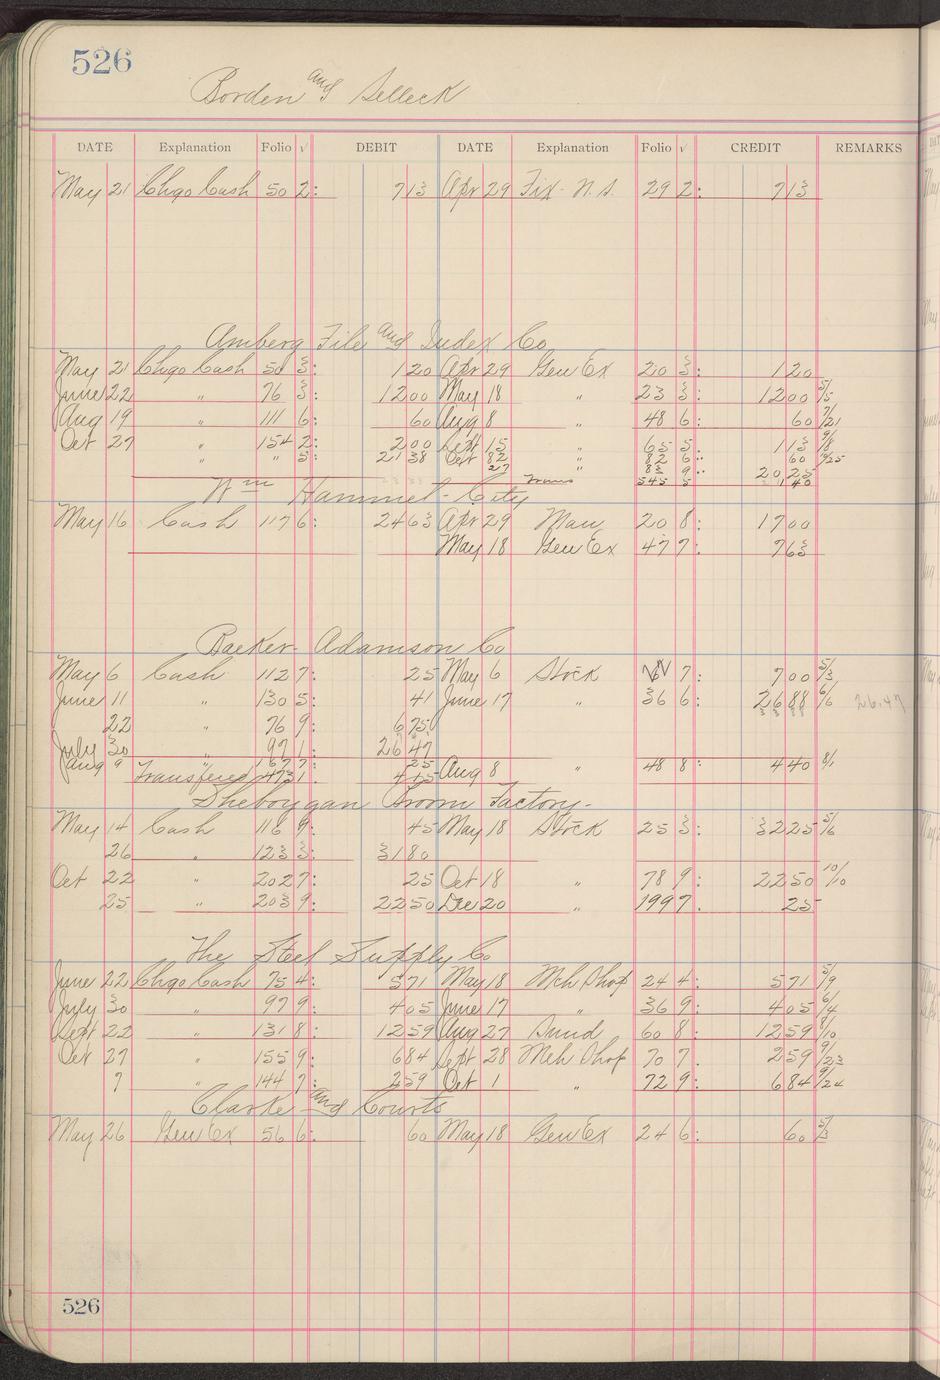 526
Borden and Selleck
DATE Explanation Folio √ DEBIT DATE Explanation Folio √ CREDIT REMARKS
May 21 Chgo Cash 50 2: 713 Apr 29 Fix - N.S. 29 2: 713
Amberg File and Index Co
May 21 Chgo Cash 50 3: 120 Apr 29 Gen Ex 20 3: 120
June 22 " 76 3: 1200 May 18 " 23 3: 1200 5/5
Aug 19 " 111 6: 60 Aug 8 " 48 6: 60 7/21
Oct 27 " 154 2: 200 Sept 15 " 65 5 113 9/8
" " 5: 2138 Oct 82 " 82 6 60 9/25
27 " 83 9 2025
Trans 545 5 140
Wm Hammel - City
May 16 Cash 117 6: 2463 Apr 29 Man 20 8: 1700
May 18 Gen Ex 47 7: 763
Baeker - Adamson Co
May 6 Cash 112 7: 25 May 6 Stock 7: 700 5/3
June 11 " 130 5: 41 June 17 " 36 6: 2688 6/6 26.47
22 " 76 9: 675
July 30 " 97 1: 2647
Aug 9 167 7: 25 Aug 8 " 48 8: 440 8/1
Transfered 473 1. 415
Sheboygan Broom Factory -
May 14 Cash 116 9: 45 May 18 Stock 25 3: 3225 5/16
26 " 123 3: 3180
Oct 22 " 202 7: 25 Oct 18 " 78 9: 2250 10/10
25 " 203 9: 2250 Dec 20 " 199 7. 25
The Steel Supply Co
June 22 Chgo Cash 75 4: 571 May 18 Mch Shop 24 4: 571 5/9
July 30 " 97 9: 405 June 17 " 36 9: 405 6/4
Sept 22 " 131 8: 1259 Aug 27 Sund 60 8: 1259 8/10
Oct 27 " 155 9: 684 Sept 28 Mch Shop 70 7 259 9/23
7 " 144 7: 259 Oct 1 " 72 9: 684 9/24
Clarke and Courts
May 26 Gen Ex 56 6: 60 May 18 Gen Ex 24 6: 60 5/3
526